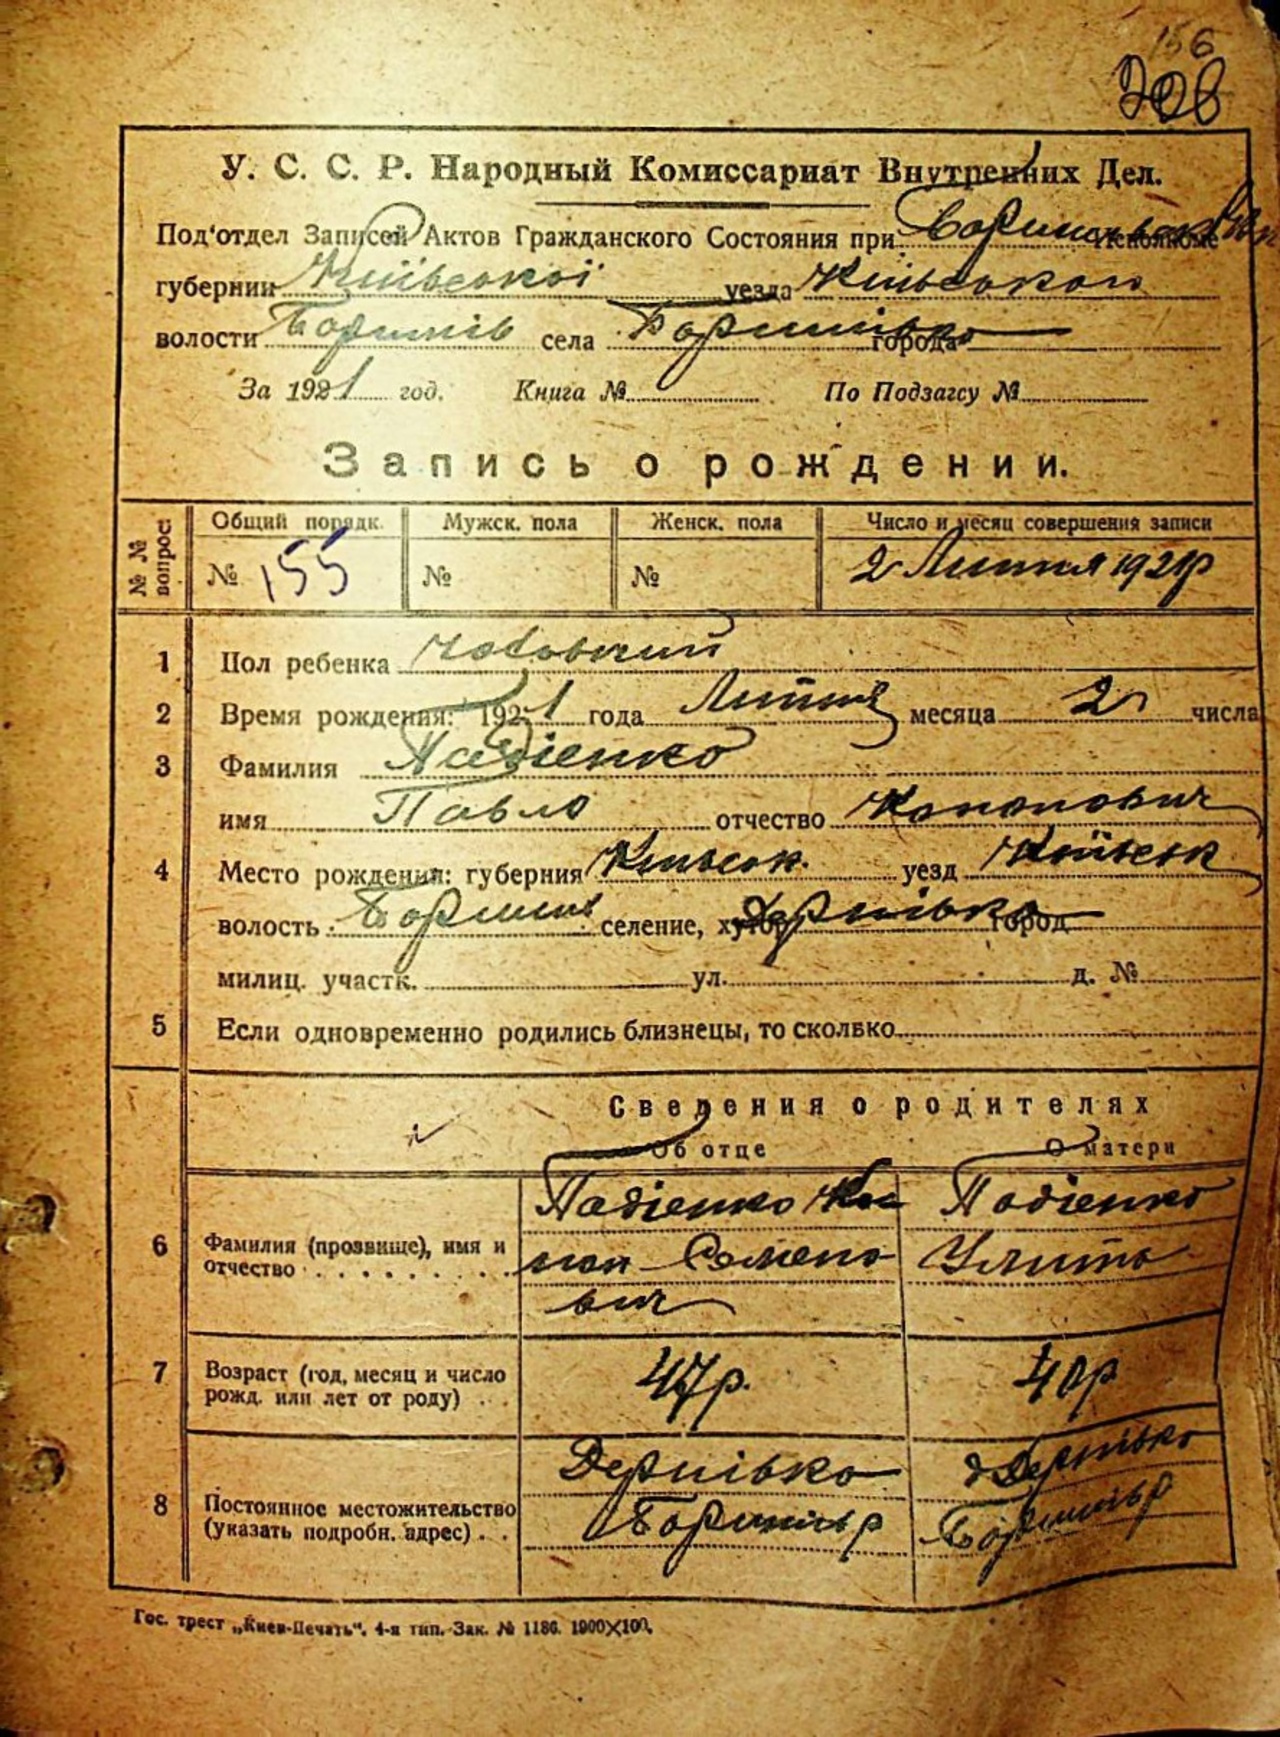 156
У. С. С. Р. Народный Комиссариат Внутренних Дел.
Под'отдел Записей Актов Гражданского Состояния при
губернии Київської уезда Київського
волости села города
За 1921 год. Книга № По Подзагсу №
Запись о рождении.
№ № вопрос. Общий порядк. Мужск. пола Женск. пола Число и месяц совершения записи
№ 155 № № 2 Липня 1921 р
1 Пол ребенка
2 Время рождения: 1921 года Липня месяца 2 числа
3 Фамилия Падіенко
имя Павло отчество Кононович
4 Место рождения: губерния Київськ. уезд Київськ
волость селение, хутор город
милиц. участк. ул. д. №
5 Если одновременно родились близнецы, то сколько
Сведения о родителях
Об отце О матери
6 Фамилия (прозвище), имя и отчество Падіенко Ко Падіенко
нон Семено Улита
вич
7 Возраст (год, месяц и число рожд. или лет от роду) 47 р. 40 р
8 Постоянное местожительство (указать подробн. адрес)
Гос. трест „Киев-Печать“. 4-я тип. Зак. № 1186. 1900×100.